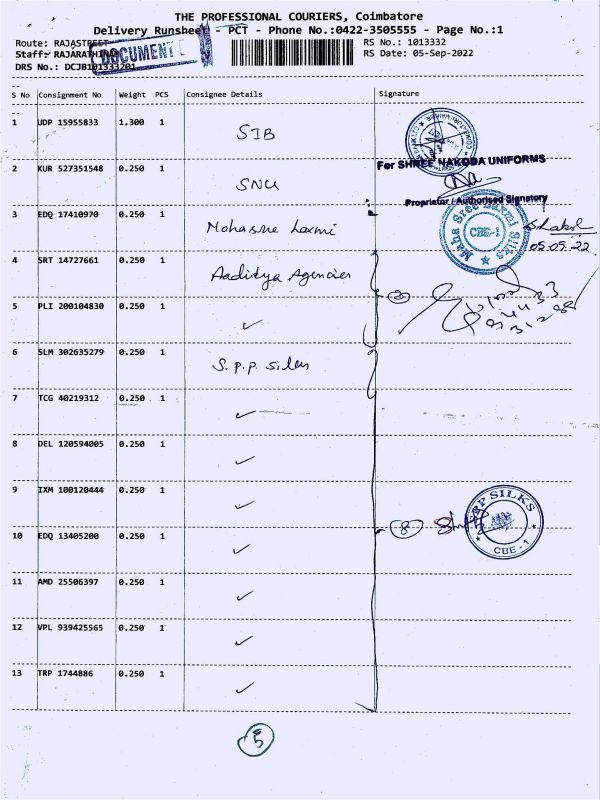 THE PROFESSIONAL COURIERS, Coimbatore
Delivery Runsheet - PCT - Phone No.:0422-3505555 - Page No.:1
Route: RAJASTREET
RS No.: 1013332
Staff: RAJARATHINA
DOCUMENT
RS Date: 05-Sep-2022
DRS No.: DCJB101333201
S No Consignment No Weight PCS Consignee Details Signature
1 UDP 15955833 1.300 1 SIB
2 KUR 527351548 0.250 1 SNU
For SHREE NAKODA UNIFORMS
Proprietor / Authorised Signatory
3 EDQ 17410970 0.250 1 Mohasree Laxmi
Maha Sree Laxmi Silks
CBE-1
S. Laksh
05.09.22
4 SRT 14727661 0.250 1 Aaditya Agencies
5 PLI 200104830 0.250 1 ✓
2
6 SLM 302635279 0.250 1 S.P.P. Silks
7 TCG 40219312 0.250 1 ✓
8 DEL 120594005 0.250 1 ✓
9 IXM 100120444 0.250 1 ✓
10 EDQ 13405200 0.250 1 ✓
8
SPP SILKS
CBE - 1
11 AMD 25506397 0.250 1 ✓
12 VPL 939425565 0.250 1 ✓
13 TRP 1744886 0.250 1 ✓
5